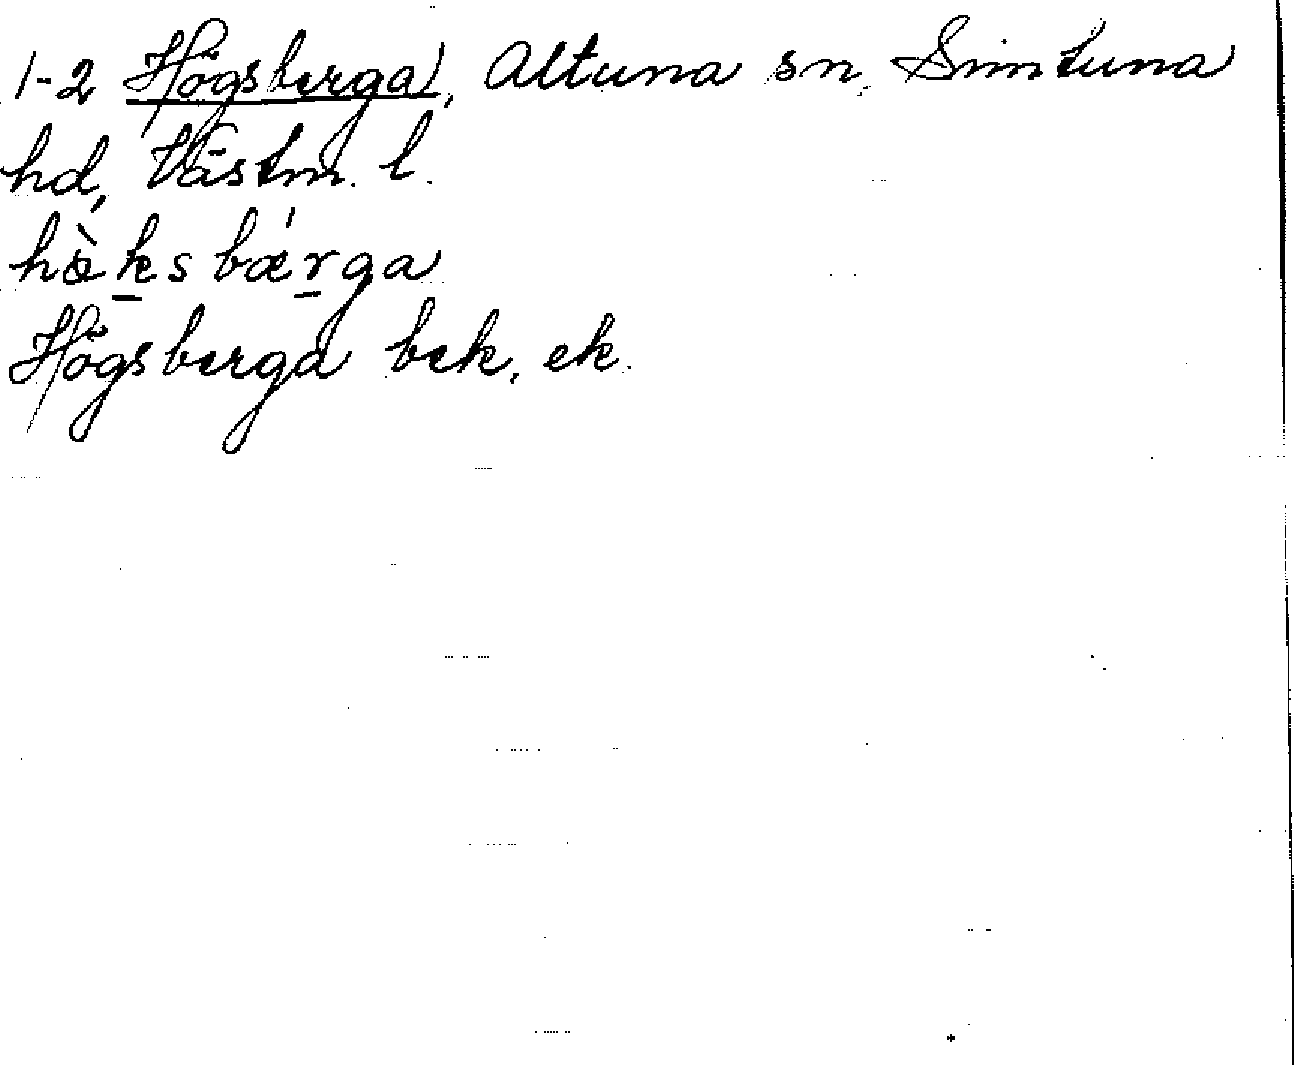 1-2 Högsberga, Altuna sn, Simtuna
hd, Västm. l.
hὰksbǽrga
Högsberga bek. ek.